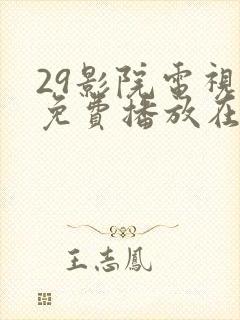 29影院電視
免費播放在
王志鳳